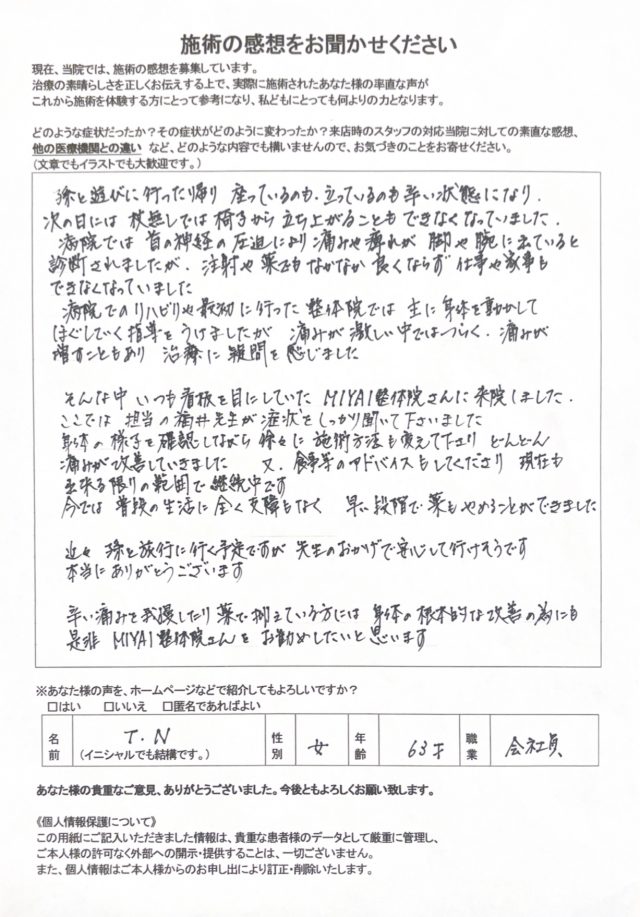 施術の感想をお聞かせください
現在、当院では、施術の感想を募集しています。
治療の素晴らしさを正しくお伝えする上で、実際に施術されたあなた様の率直な声が
これから施術を体験する方にとって参考になり、私どもにとっても何よりの力となります。
どのような症状だったか？その症状がどのように変わったか？来店時のスタッフの対応当院に対しての素直な感想、
他の医療機関との違い など、どのような内容でも構いませんので、お気づきのことをお寄せください。
（文章でもイラストでも大歓迎です。）
孫と遊びに行ったり帰り 座っているのも、立っているのも辛い状態になり、
次の日には 杖無しでは椅子から立ち上がることもできなくなっていました.
病院では 首の神経の圧迫により痛みや痺れが 脚や腕に出ていると
診断されましたが、注射や薬でもなかなか良くならず 仕事や家事も
できなくなっていました
病院でのリハビリや最初に行った整体院では 主に身体を動かして
ほぐしていく指導をうけましたが 痛みが激しい中ではつらく、痛みが
増すこともあり 治療に疑問を感じました
そんな中 いつも看板を目にしていた MIYAI整体院さんに来院しました.
ここでは 担当の 井先生が症状をしっかり聞いて下さいました
身体の様子を確認しながら 徐々に 施術方法も変えて下さり どんどん
痛みが改善していきました 又、食事等のアドバイスもしてくださり 現在も
出来る限りの範囲で継続中です
今では 普段の生活に全く支障もなく 早い段階で薬もやめることができました
近々 孫と旅行に行く予定ですが 先生のおかげで安心して行けそうです
本当にありがとうございます
辛い痛みを我慢したり薬で抑えている方には 身体の根本的な改善の為にも
是非 MIYAI整体院さんを お勧めしたいと思います
※あなた様の声を、ホームページなどで紹介してもよろしいですか？
□はい □いいえ □匿名であればよい
名前 T.N （イニシャルでも結構です。） 性別 女 年齢 63才 職業 会社員
あなた様の貴重なご意見、ありがとうございました。今後ともよろしくお願い致します。
《個人情報保護について》
この用紙にご記入いただきました情報は、貴重な患者様のデータとして厳重に管理し、
ご本人様の許可なく外部への開示・提供することは、一切ございません。
また、個人情報はご本人様からのお申し出により訂正・削除いたします。